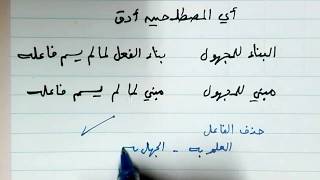 أي المصطلحين أدق
البناء للمجهول بناء الفعل لما لم يسم فاعله
مبني للمجهول مبني لما لم يسم فاعله
حذف الفاعل
العلم به - الجهل به